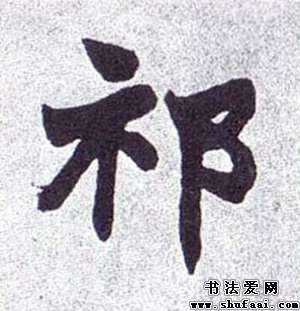 祁
书法爱网
www.shufaai.com